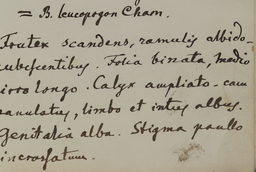 = B. leucopogon Cham.
Frutex scandens, ramulis albido-
pubescentibus. Folia binata, medio
cirro longo. Calyx ampliato-cam
panulatus, limbo et intus albus.
Genitalia alba. Stigma paullo
incrassatum.